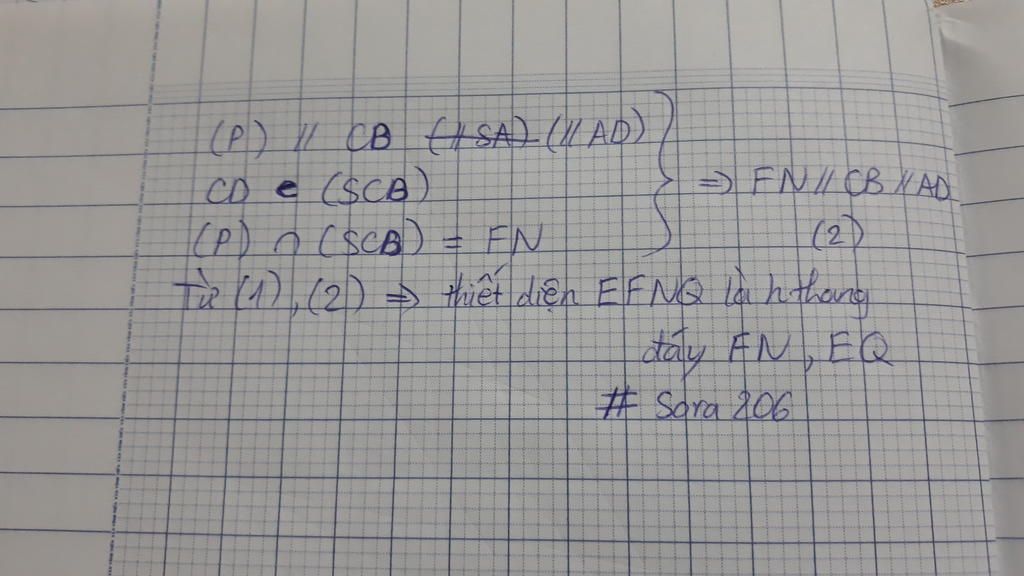 (P) // CB (//SA) (//AD)
CD e (SCB)
(P) ∩ (SCB) = FN
⇒ FN // CB // AD
(2)
Từ (1), (2) ⇒ thiết diện EFNQ là h thang
đáy FN, EQ
# Sora 206